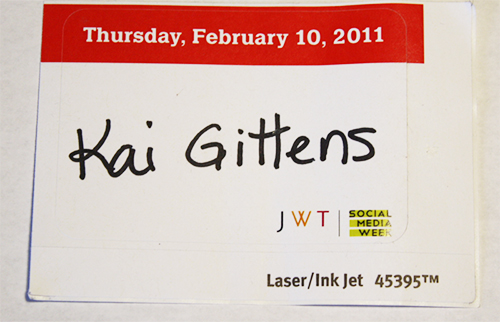 Thursday, February 10, 2011
Kai Gittens
JWT | SOCIAL
MEDIA
WEEK
Laser/Ink Jet 45395™